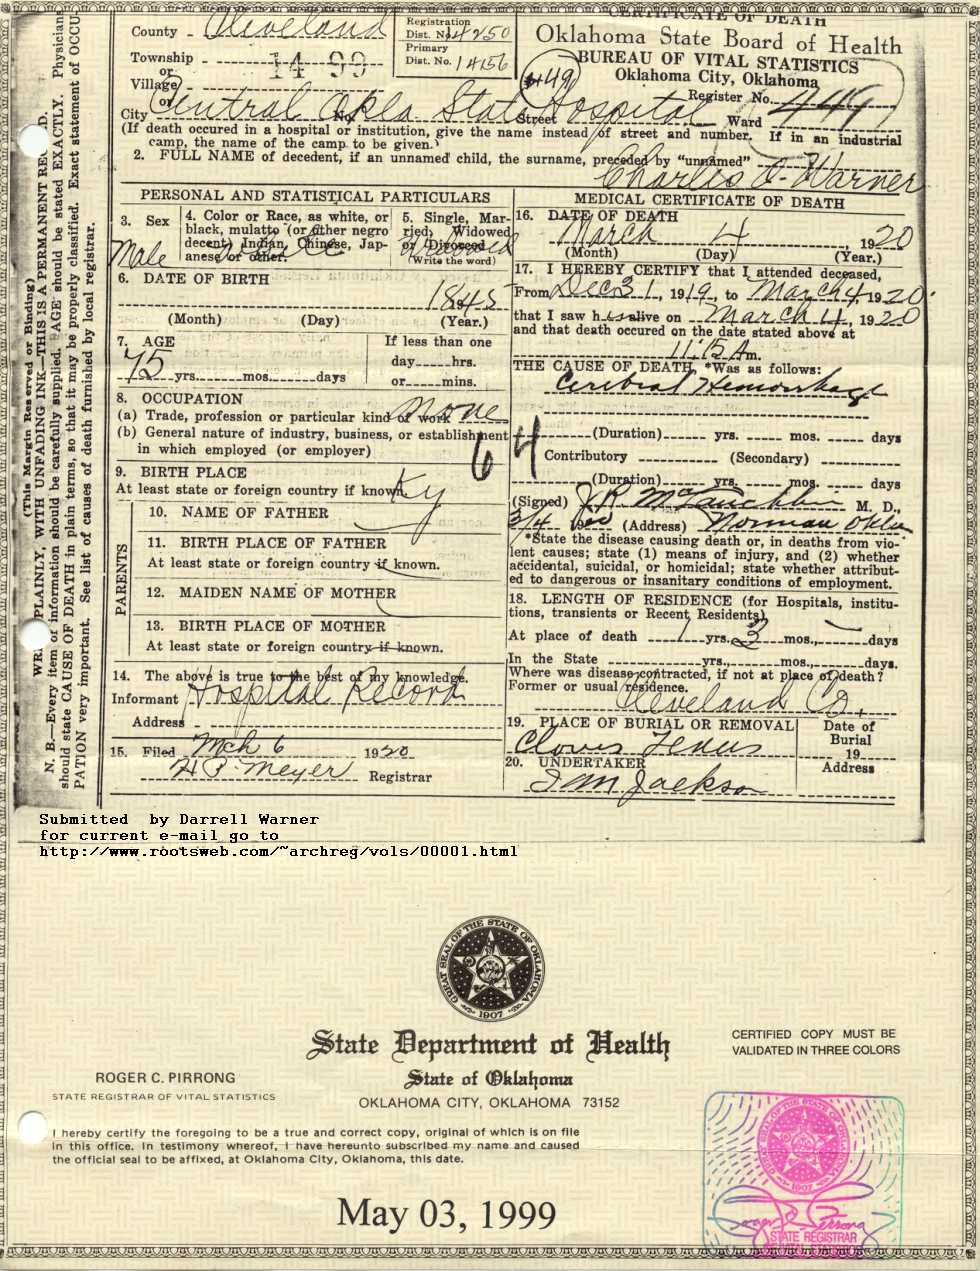 CERTIFICATE OF DEATH
Oklahoma State Board of Health
BUREAU OF VITAL STATISTICS
Oklahoma City, Oklahoma
County - Cleveland
Registration
Dist. No. 4250
Primary
Dist. No. 14156
Township
or
Village
or
14 99
449
Register No. 449
City Central Okla State Hospital No. Street Ward
(If death occured in a hospital or institution, give the name instead of street and number. If in an industrial
camp, the name of the camp to be given.)
2. FULL NAME of decedent, if an unnamed child, the surname, preceded by "unnamed"
Charles O. Warner
PERSONAL AND STATISTICAL PARTICULARS
3. Sex
Male
4. Color or Race, as white, or
black, mulatto (or other negro
decent, Indian, Chinese, Jap-
anese or other.
5. Single, Mar-
ried, Widowed
or Divorced
(Write the word)
6. DATE OF BIRTH
1845
(Month) (Day) (Year.)
7. AGE
75 yrs. mos. days
If less than one
day hrs.
or mins.
8. OCCUPATION
(a) Trade, profession or particular kind of work None
(b) General nature of industry, business, or establishment
in which employed (or employer)
64
9. BIRTH PLACE
At least state or foreign country if known. Ky
PARENTS
10. NAME OF FATHER
11. BIRTH PLACE OF FATHER
At least state or foreign country if known.
12. MAIDEN NAME OF MOTHER
13. BIRTH PLACE OF MOTHER
At least state or foreign country if known.
14. The above is true to the best of my knowledge.
Informant Hospital Record
Address -
15. Filed Mch 6 1920
H P. Meyer Registrar
MEDICAL CERTIFICATE OF DEATH
16. DATE OF DEATH
March 4, 1920
(Month) (Day) (Year.)
17. I HEREBY CERTIFY that I attended deceased,
From Dec 31, 1919, to March 4 1920.
that I saw h alive on March 4, 1920
and that death occured on the date stated above at
11:15 A m.
THE CAUSE OF DEATH, *Was as follows:
Cerebral Hemorrhage
(Duration) yrs. mos. days
Contributory (Secondary)
(Duration) yrs. mos. days
(Signed) J.R. McLauchlin M. D.,
3/4 1920 (Address) Norman Okla
*State the disease causing death or, in deaths from vio-
lent causes; state (1) means of injury, and (2) whether
accidental, suicidal, or homicidal; state whether attribut-
ed to dangerous or insanitary conditions of employment.
18. LENGTH OF RESIDENCE (for Hospitals, institu-
tions, transients or Recent Residents)
At place of death 1 yrs. 3 mos., days
In the State yrs., mos., days.
Where was disease contracted, if not at place of death?
Former or usual residence.
Cleveland Co.
19. PLACE OF BURIAL OR REMOVAL
Clovis Texas
Date of
Burial
19
20. UNDERTAKER
Jackson
Address
(This Margin Reserved or Binding)
WRITE PLAINLY, WITH UNFADING INK—THIS IS A PERMANENT RECORD.
N. B.—Every item of information should be carefully supplied. AGE should be stated EXACTLY. Physician
should state CAUSE OF DEATH in plain terms, so that it may be properly classified. Exact statement of OCCU
PATION very important. See list of causes of death furnished by local registrar.
Submitted by Darrell Warner
for current e-mail go to
http://www.rootsweb.com/~archreg/vols/00001.html
GREAT SEAL OF THE STATE OF OKLAHOMA
1907
State Department of Health
State of Oklahoma
OKLAHOMA CITY, OKLAHOMA 73152
CERTIFIED COPY MUST BE
VALIDATED IN THREE COLORS
ROGER C. PIRRONG
STATE REGISTRAR OF VITAL STATISTICS
I hereby certify the foregoing to be a true and correct copy, original of which is on file
in this office. In testimony whereof, I have hereunto subscribed my name and caused
the official seal to be affixed, at Oklahoma City, Oklahoma, this date.
May 03, 1999
GREAT SEAL OF THE STATE OF OKLAHOMA
1907
Roger C. Pirrong
STATE REGISTRAR
VITAL STATISTICS